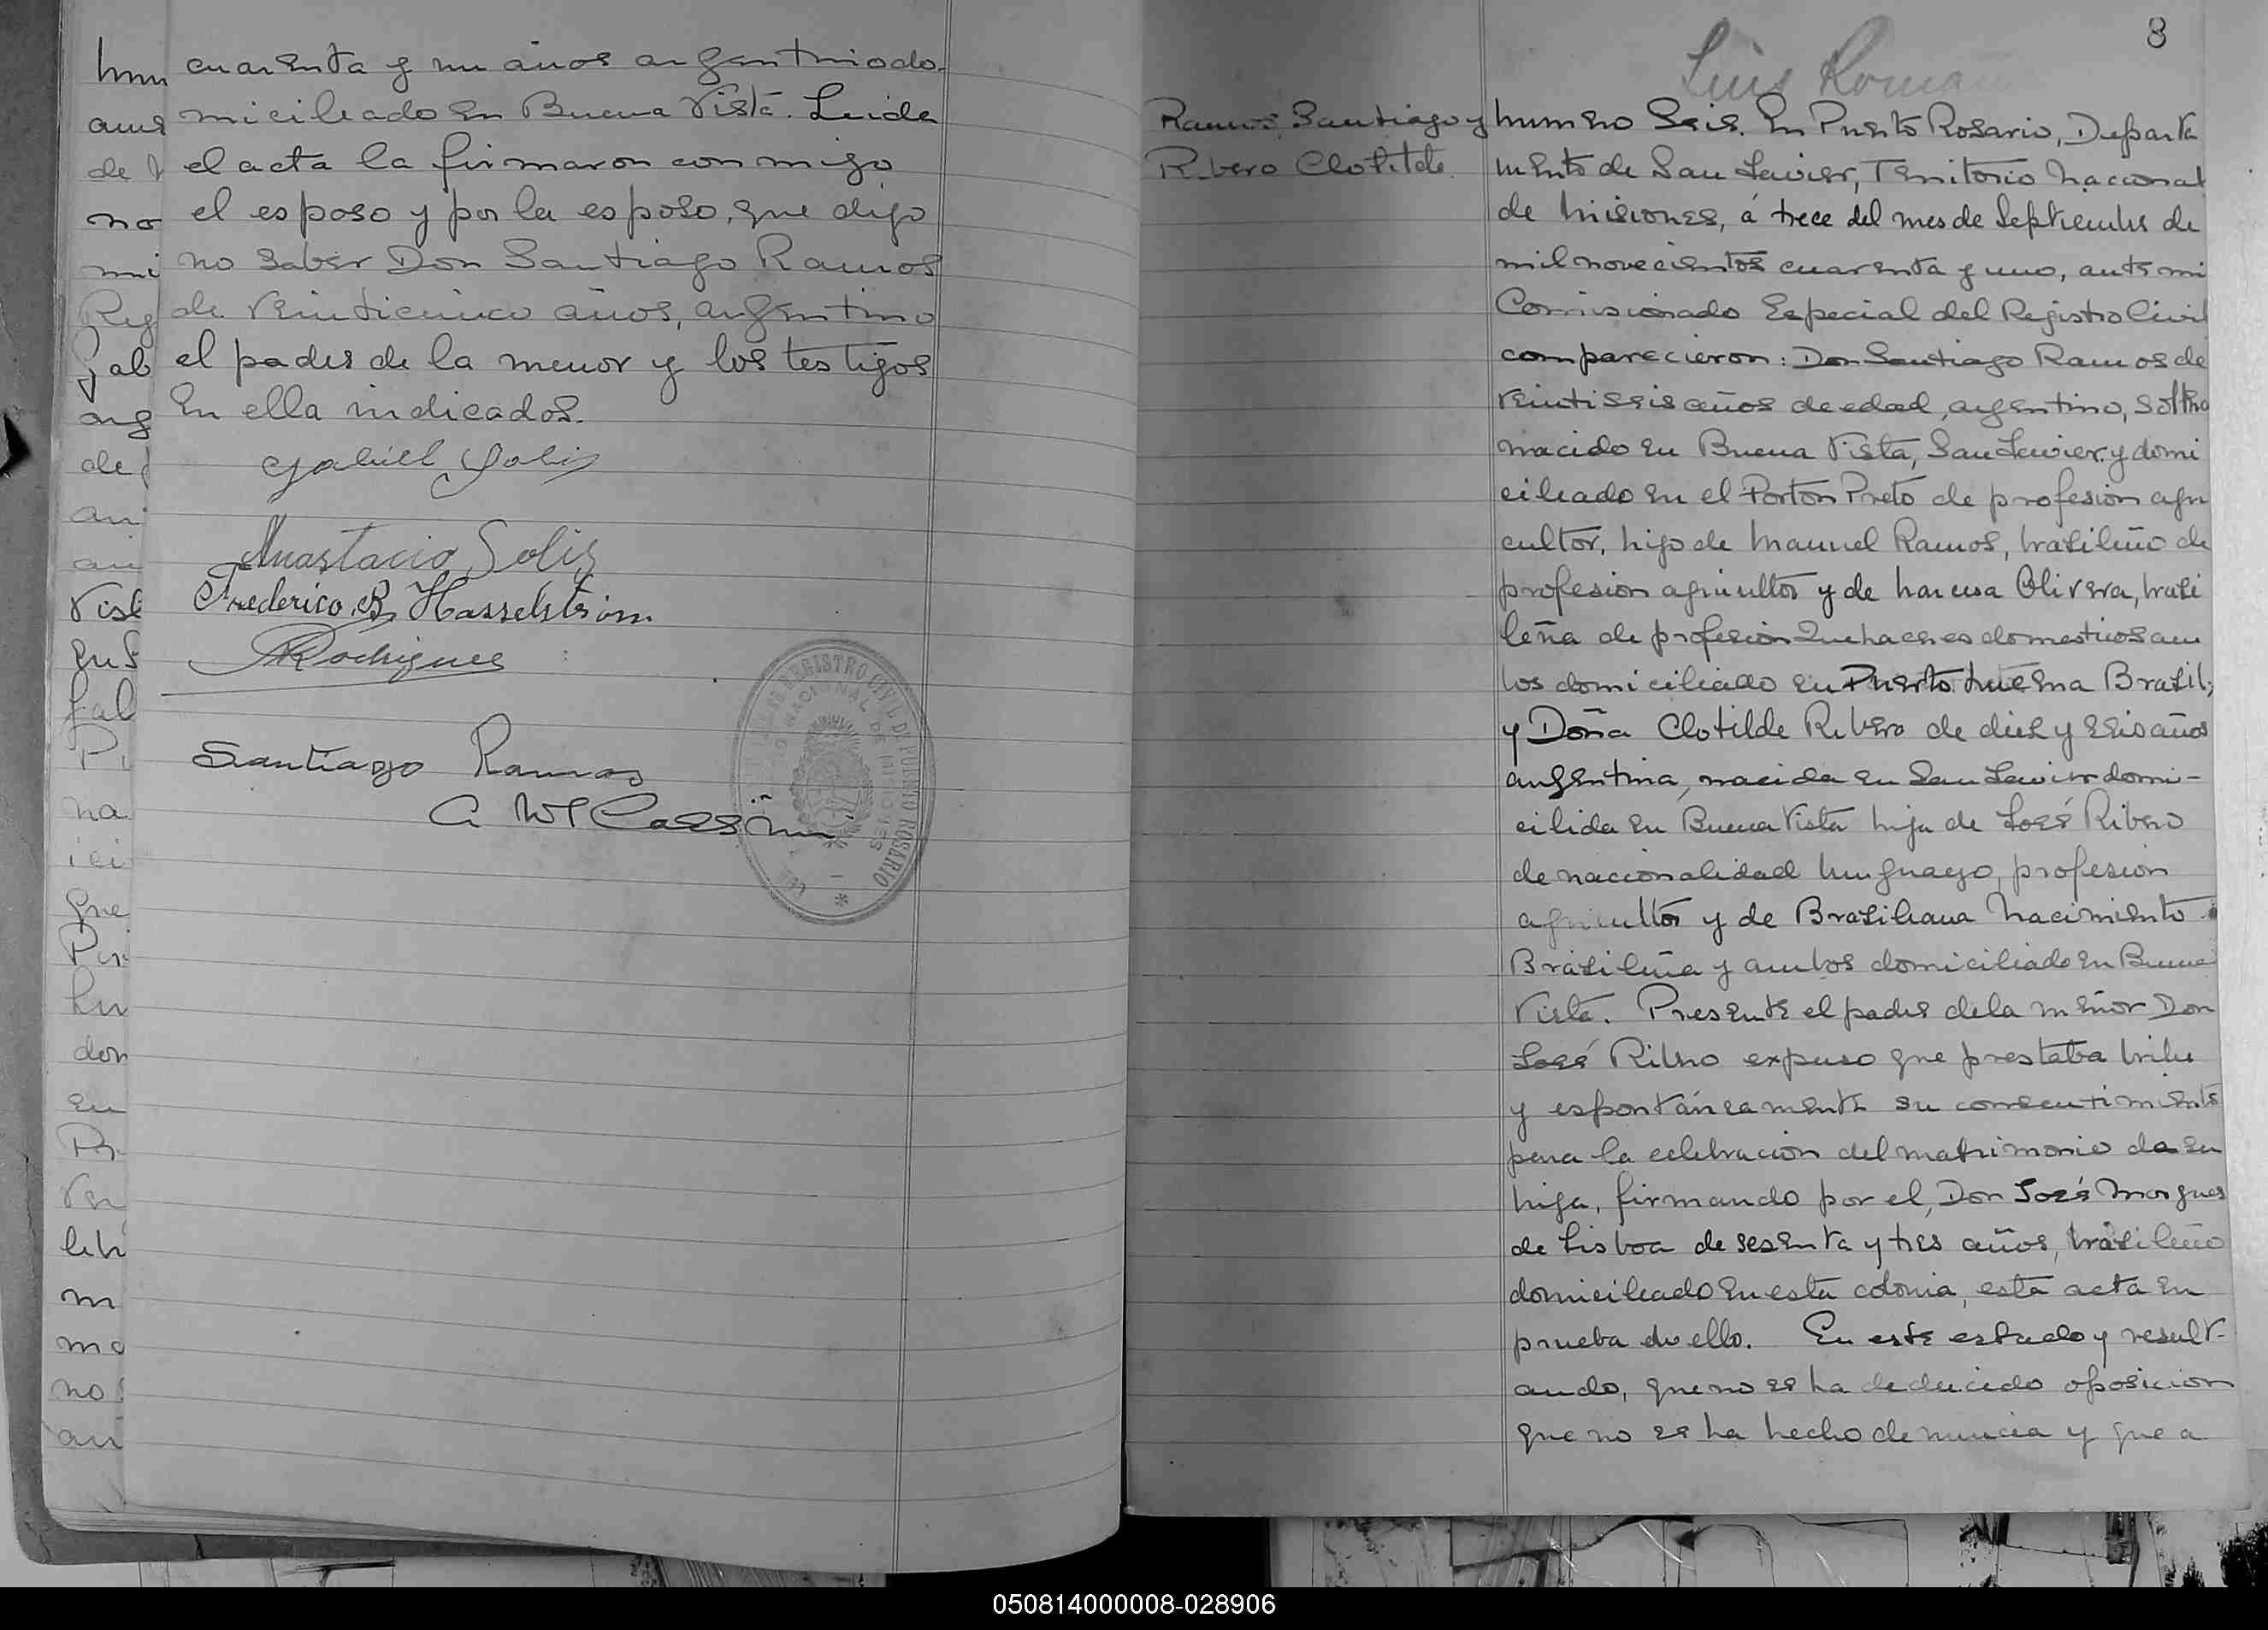 cuarenta y un años argentino do-
miciliado en Buena Vista. Leida
el acta la firmaron con migo
el esposo y por la esposo, que dijo
no saber Don Santiago Ramos
de veinticinco años, argentino
el padre de la menor y los testigos
En ella indicados.
Gabriel Solis
Anastacio Solis
Frederico B. Hasselström.
Rodrigues
Santiago Ramos
REGISTRO CIVIL DE PUERTO ROSARIO
NACIONAL DE MISIONES
8
Luis Roman
Ramos Santiago y
Ribero Clotilde
Numero Seis. En Puerto Rosario, Departa
mento de San Javier, Territorio Nacional
de Misiones, á trece del mes de Septiembre de
mil novecientos cuarenta y uno, ante mi
Comisionado Especial del Registro Civil
comparecieron: Don Santiago Ramos de
veintiseis años de edad, argentino, soltero
nacido en Buena Vista, San Javier y domi
ciliado en el Porton Preto de profesion agri
cultor, hijo de Manuel Ramos, brasileño de
profesion agricultor y de Olivera, brasi
leña de profesion quehaceres domesticos am
bos domiciliado en Puerto Brazil;
y Doña Clotilde Ribero de diez y seis años
argentina, nacida en San Javier domi-
cilida en Buena Vista hija de José Ribero
de nacionalidad Uruguayo, profesion
agricultor y de Braziliana Nacimiento
Brasileña y ambos domiciliado en Buena
Vista. Presente el padre de la menor Don
José Ribero expuso que prestaba libre
y espontáneamente su consentimiento
para la celebracion del matrimonio de su
hija, firmando por el, Don José Marques
de Lisboa de sesenta y tres años, brasileño
domiciliado en esta colonia, esta acta en
prueba de ello. En este estado y result-
ando, que no se ha deducido oposicion
que no se ha hecho denuncia y que a
050814000008-028906